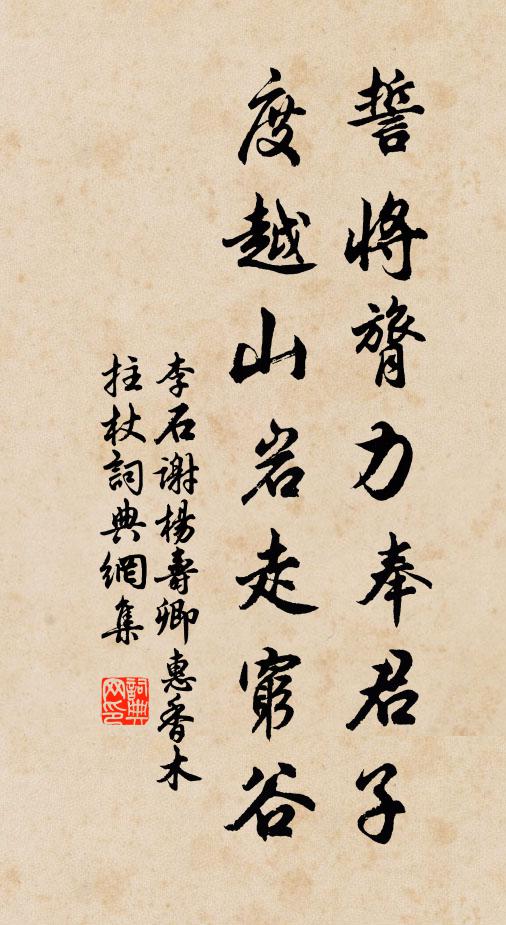 誓將膂力奉君子
度越山岩走窮谷
李石謝楊壽卿惠香木
拄杖詞典網集
詞典
网印